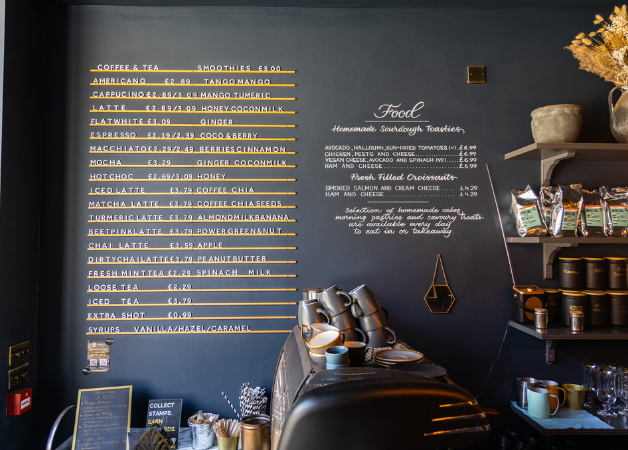 COFFEE & TEA SMOOTHIES £5.00
AMERICANO £2.89 TANGO MANGO
CAPPUCINO £2.89/3.09 MANGO TUMERIC
LATTE £2.89/3.09 HONEY COCONMILK
FLATWHITE £3.09 GINGER
ESPRESSO £2.19/2.39 COCO & BERRY
MACCHIATO £2.29/2.49 BERRIES CINNAMON
MOCHA £3.29 GINGER COCONMILK
HOT CHOC £2.89/3.09 HONEY
ICED LATTE £3.79 COFFEE CHIA
MATCHA LATTE £3.79 COFFEE CHIA SEEDS
TURMERIC LATTE £3.79 ALMONDMILK BANANA
BEETPINK LATTE £3.79 POWER GREEN & NUT
CHAI LATTE £3.59 APPLE
DIRTY CHAI LATTE £3.79 PEANUT BUTTER
FRESH MINT TEA £2.29 SPINACH MILK
LOOSE TEA £2.29
ICED TEA £3.79
EXTRA SHOT £0.99
SYRUPS VANILLA/HAZEL/CARAMEL
Food
Homemade Sourdough Toasties
AVOCADO, HALLOUMI, SUN-DRIED TOMATOES (V) £6.99
CHICKEN, PESTO AND CHEESE £6.99
VEGAN CHEESE, AVOCADO AND SPINACH (VE) £6.99
HAM AND CHEESE £6.99
Fresh Filled Croissants
SMOKED SALMON AND CREAM CHEESE £4.29
HAM AND CHEESE £4.29
Selection of homemade cakes,
morning pastries and savoury treats
are available every day
to eat in or takeaway
COLLECT
STAMPS.
EARN